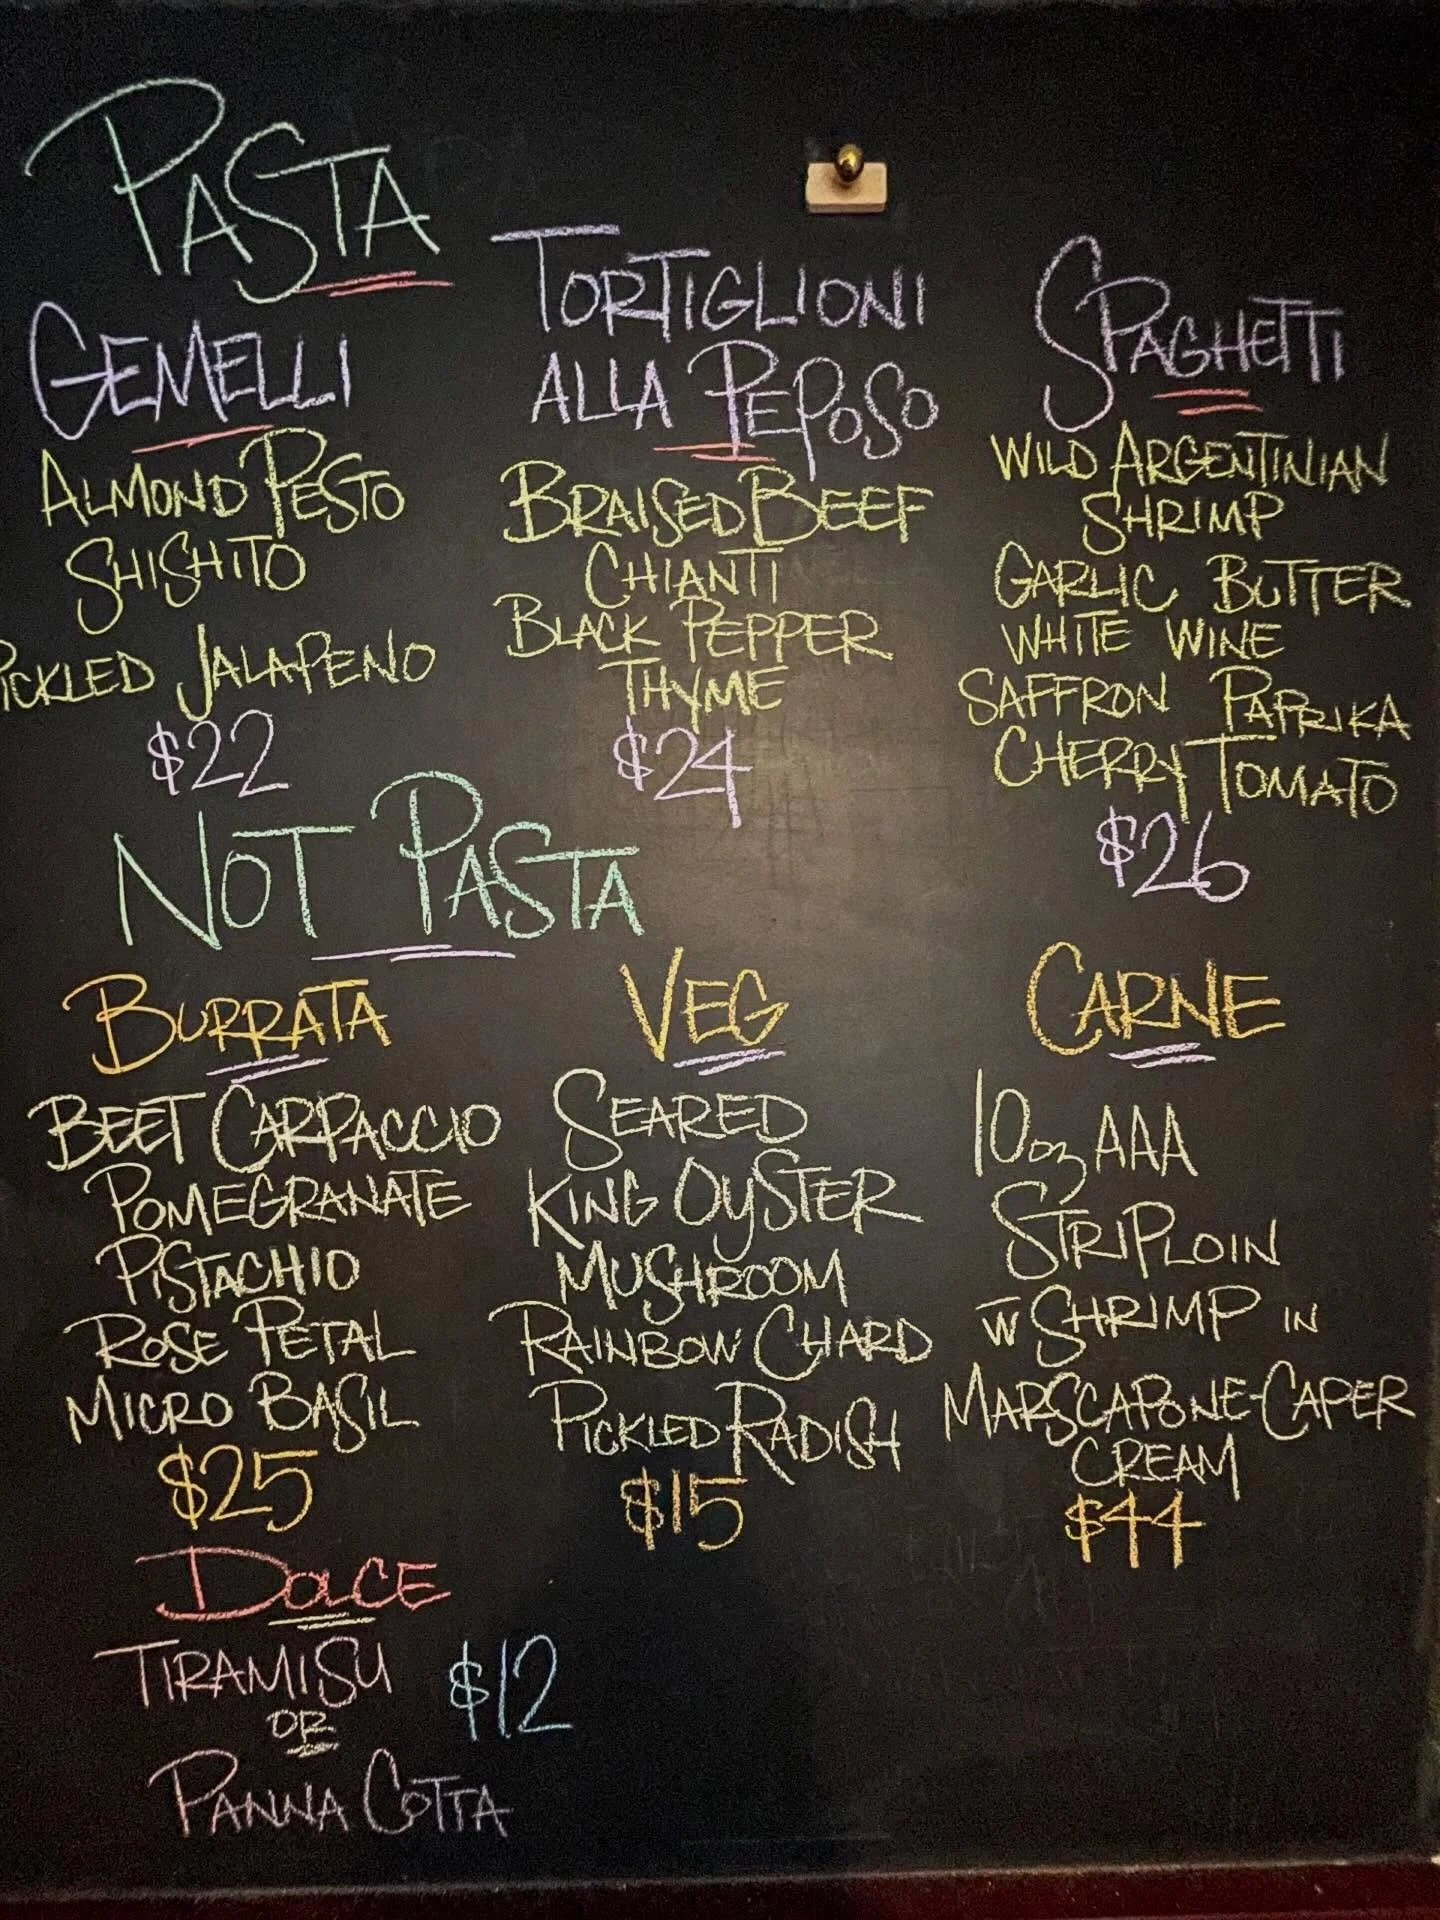 PASTA
GEMELLI
ALMOND PESTO
SHISHITO
PICKLED JALAPENO
$22
TORTIGLIONI
ALLA PEPOSO
BRAISED BEEF
CHIANTI
BLACK PEPPER
THYME
$24
SPAGHETTI
WILD ARGENTINIAN
SHRIMP
GARLIC BUTTER
WHITE WINE
SAFFRON PAPRIKA
CHERRY TOMATO
$26
NOT PASTA
BURRATA
BEET CARPACCIO
POMEGRANATE
PISTACHIO
ROSE PETAL
MICRO BASIL
$25
VEG
SEARED
KING OYSTER
MUSHROOM
RAINBOW CHARD
PICKLED RADISH
$15
CARNE
10oz AAA
STRIPLOIN
w SHRIMP IN
MARSCAPONE-CAPER
CREAM
$44
DOLCE
TIRAMISU $12
OR
PANNA COTTA